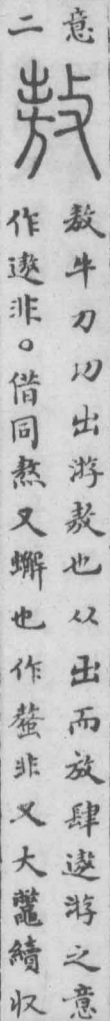 意
二
敖
敖牛刀切出游敖也从出而放肆遨游之意
作遨非。借同熬又蠏也作螯非又大鼇續収